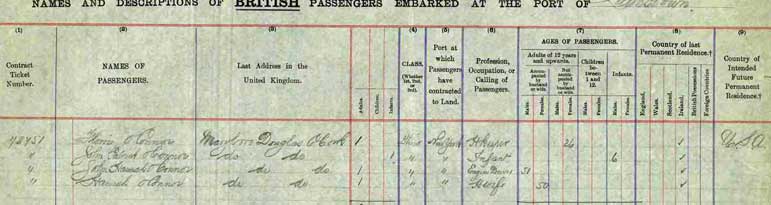 NAMES AND DESCRIPTIONS OF BRITISH PASSENGERS EMBARKED AT THE PORT OF
(1) (2) (3) (4) (5) (6) (7) (8) (9)
Contract Ticket Number.
NAMES OF PASSENGERS.
Last Address in the United Kingdom.
Adults. Children. Infants.
CLASS. (Whether 1st, 2nd, or 3rd).
Port at which Passengers have contracted to Land.
Profession, Occupation, or Calling of Passengers.
AGES OF PASSENGERS.
Adults of 12 years and upwards.
Accompanied by husband or wife.
Not accompanied by husband or wife.
Children between 1 and 12.
Infants.
Males. Females. Males. Females. Males. Females. Males. Females.
Country of last Permanent Residence.†
England. Wales. Scotland. Ireland. British Possessions Foreign Countries
Country of Intended Future Permanent Residence.†
72451 O'Connor Douglas Co Cork 1 New York 26 ✓ U.S.A.
" John Patrick O'Connor do do 1 " " Infant 6 ✓
" John O'Connor do do 1 " " Engine Driver 51 ✓
" Hannah O'Connor do do 1 " " H Wife 50 ✓